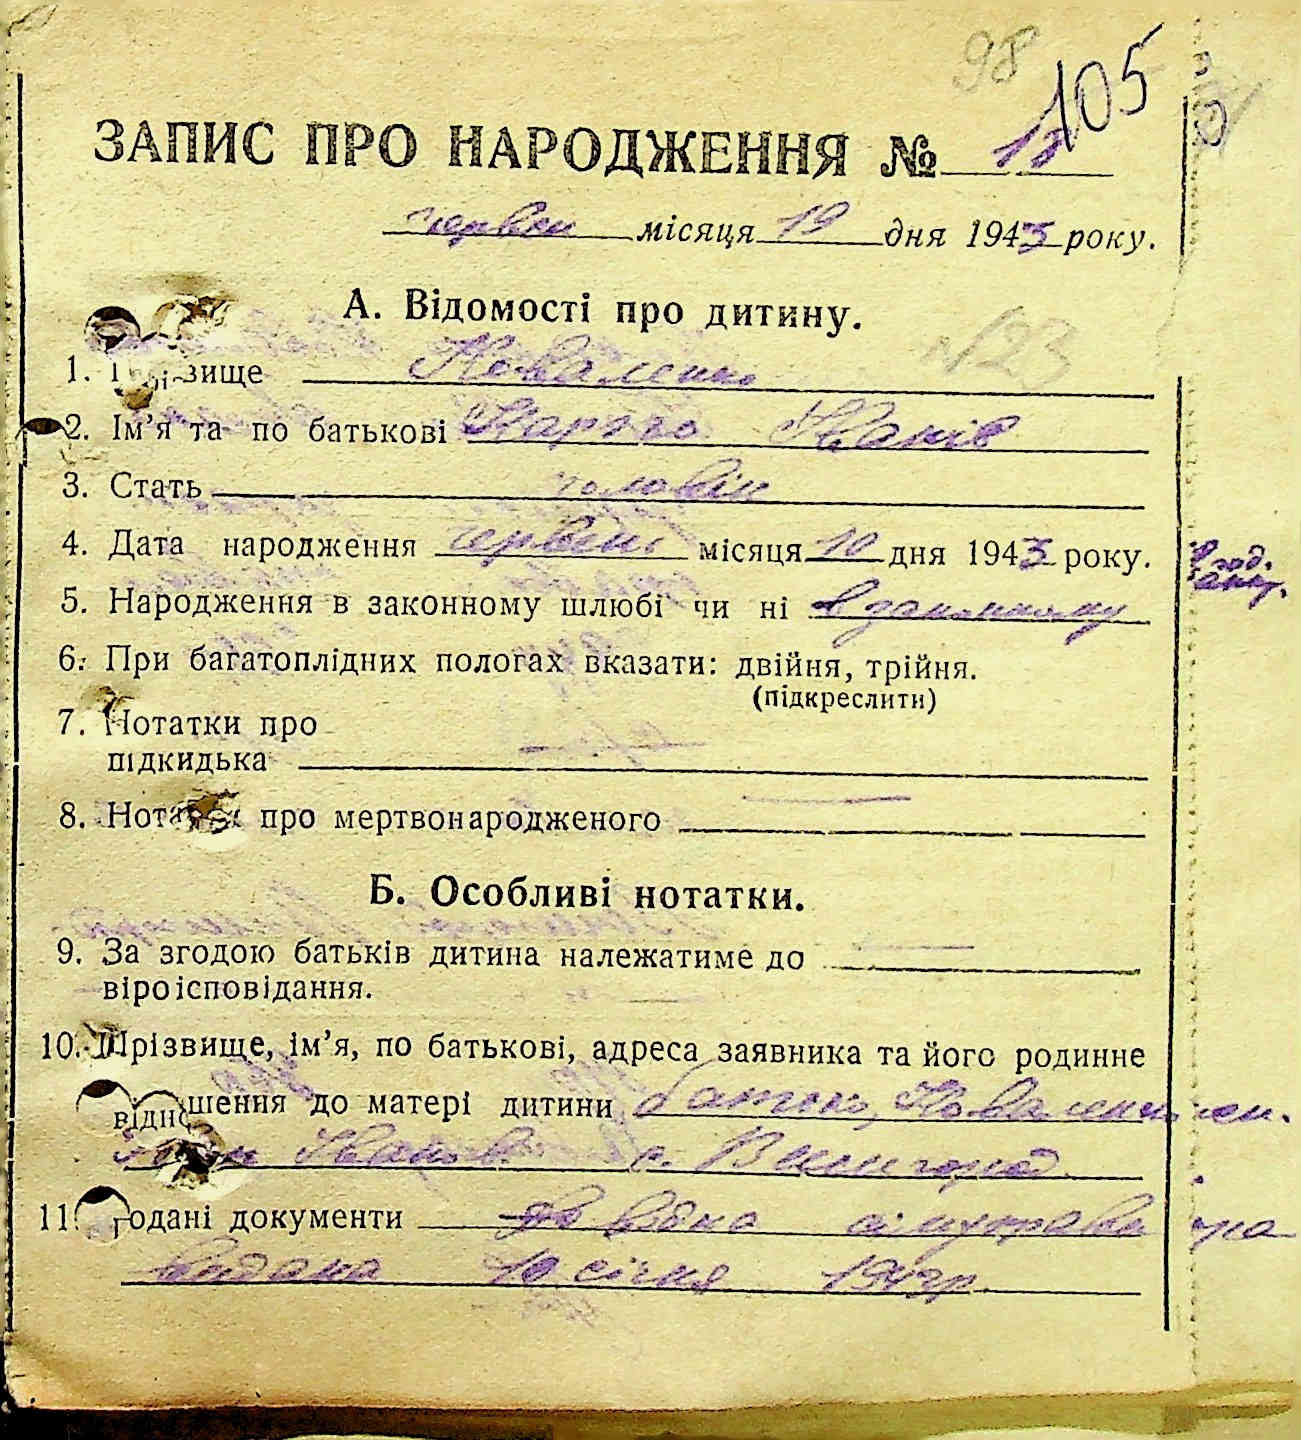 98
105
ЗАПИС ПРО НАРОДЖЕННЯ № 18
червен місяця 19 дня 1943 року.
А. Відомості про дитину.
№23
1. Прізвище Коваленко
2. Ім'я та по батькові Іванів
3. Стать чоловіч
4. Дата народження червень місяця 10 дня 1943 року.
5. Народження в законному шлюбі чи ні в законному
6. При багатоплідних пологах вказати: двійня, трійня.
(підкреслити)
7. Нотатки про
підкидька —
8. Нотатки про мертвонародженого —
Б. Особливі нотатки.
9. За згодою батьків дитина належатиме до —
віроісповідання.
10. Прізвище, ім'я, по батькові, адреса заявника та його родинне
відношення до матері дитини батько, Коваленко
Іван Іванов с. Вишгород
11. Подані документи
видана 10 січня 1943р.